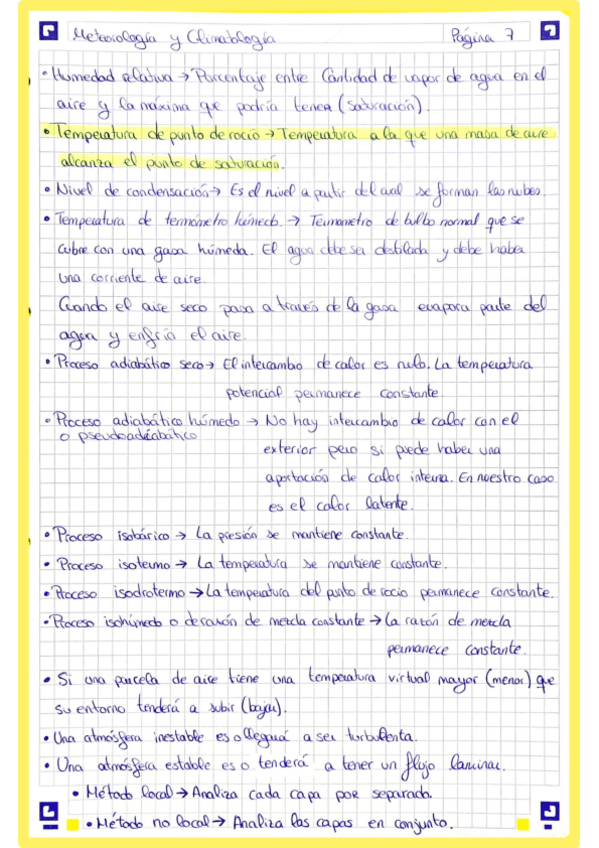 Meteorología y Climatología Página 7
• Humedad relativa → Porcentaje entre Cantidad de vapor de agua en el
aire y la máxima que podría tener (saturación).
• Temperatura de punto de rocío → Temperatura a la que una masa de aire
alcanza el punto de saturación.
• Nivel de condensación → Es el nivel a partir del cual se forman las nubes.
• Temperatura de termómetro húmedo. → Termometro de bulbo normal que se
cubre con una gasa húmeda. El agua debe ser destilada y debe haber
una corriente de aire.
Cuando el aire seco pasa a través de la gasa evapora parte del
agua y enfría el aire.
• Proceso adiabático seco → El intercambio de calor es nulo. La temperatura
potencial permanece constante
• Proceso adiabático húmedo → No hay intercambio de calor con el
o pseudoadiabático
exterior pero si puede haber una
aportación de calor interna. En nuestro caso
es el calor latente.
• Proceso isobárico → La presión se mantiene constante.
• Proceso isotermo → La temperatura se mantiene constante.
• Proceso isodrotermo → La temperatura del punto de rocío permanece constante.
• Proceso ischúmedo o de razón de mezcla constante → La razón de mezcla
permanece constante.
• Si una parcela de aire tiene una temperatura virtual mayor (menor) que
su entorno tenderá a subir (bajar).
• Una atmósfera inestable es o llegará a ser turbulenta.
• Una atmósfera estable es o tenderá a tener un flujo laminar.
• Método local → Analiza cada capa por separado.
• Método no local → Analiza las capas en conjunto.